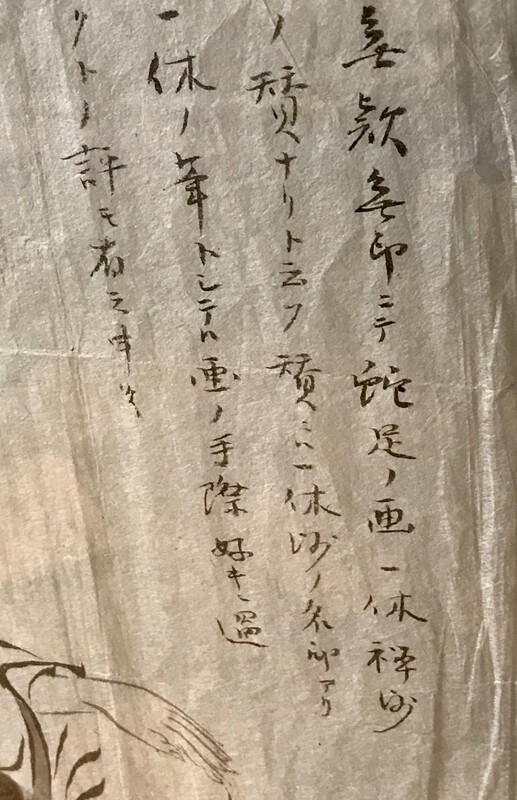 無款無印ニテ蛇足ノ画一休禅師
ノ賛ナリト云フ賛ニハ一休師ノ名印アリ
一休ノ筆トシテハ画ノ手際好キニ過
クトノ評モ有之申候